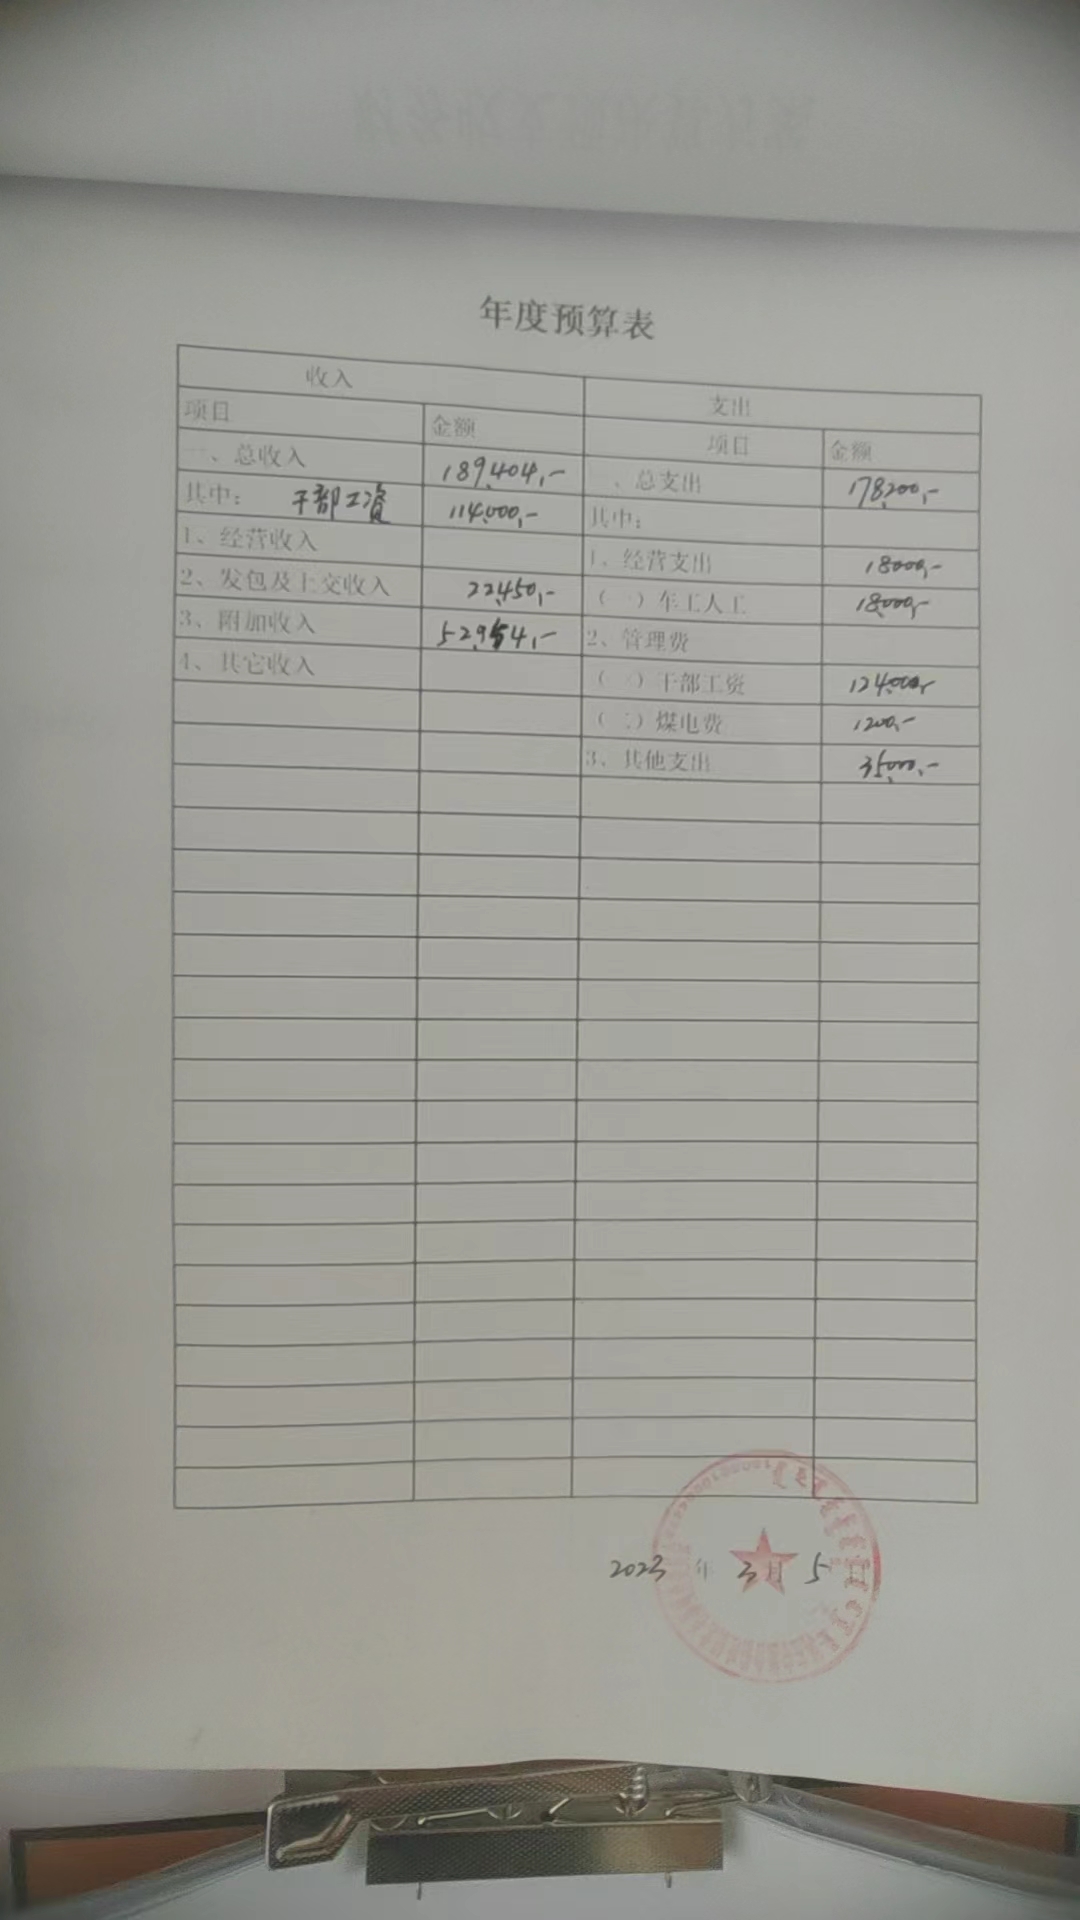 年度预算表
收入 支出
项目 金额 项目 金额
一、总收入 189,404,- 、总支出 178,200,-
其中: 干部工资 114,000,- 其中:
1、经营收入 1、经营支出 18000,-
2、发包及上交收入 22,450,- (一)车工人工 18,000,-
3、附加收入 52,954,- 2、管理费
4、其它收入 (一)干部工资 124,000,-
(二)煤电费 1200,-
3、其他支出 35,000,-
2023 年 3月 5日